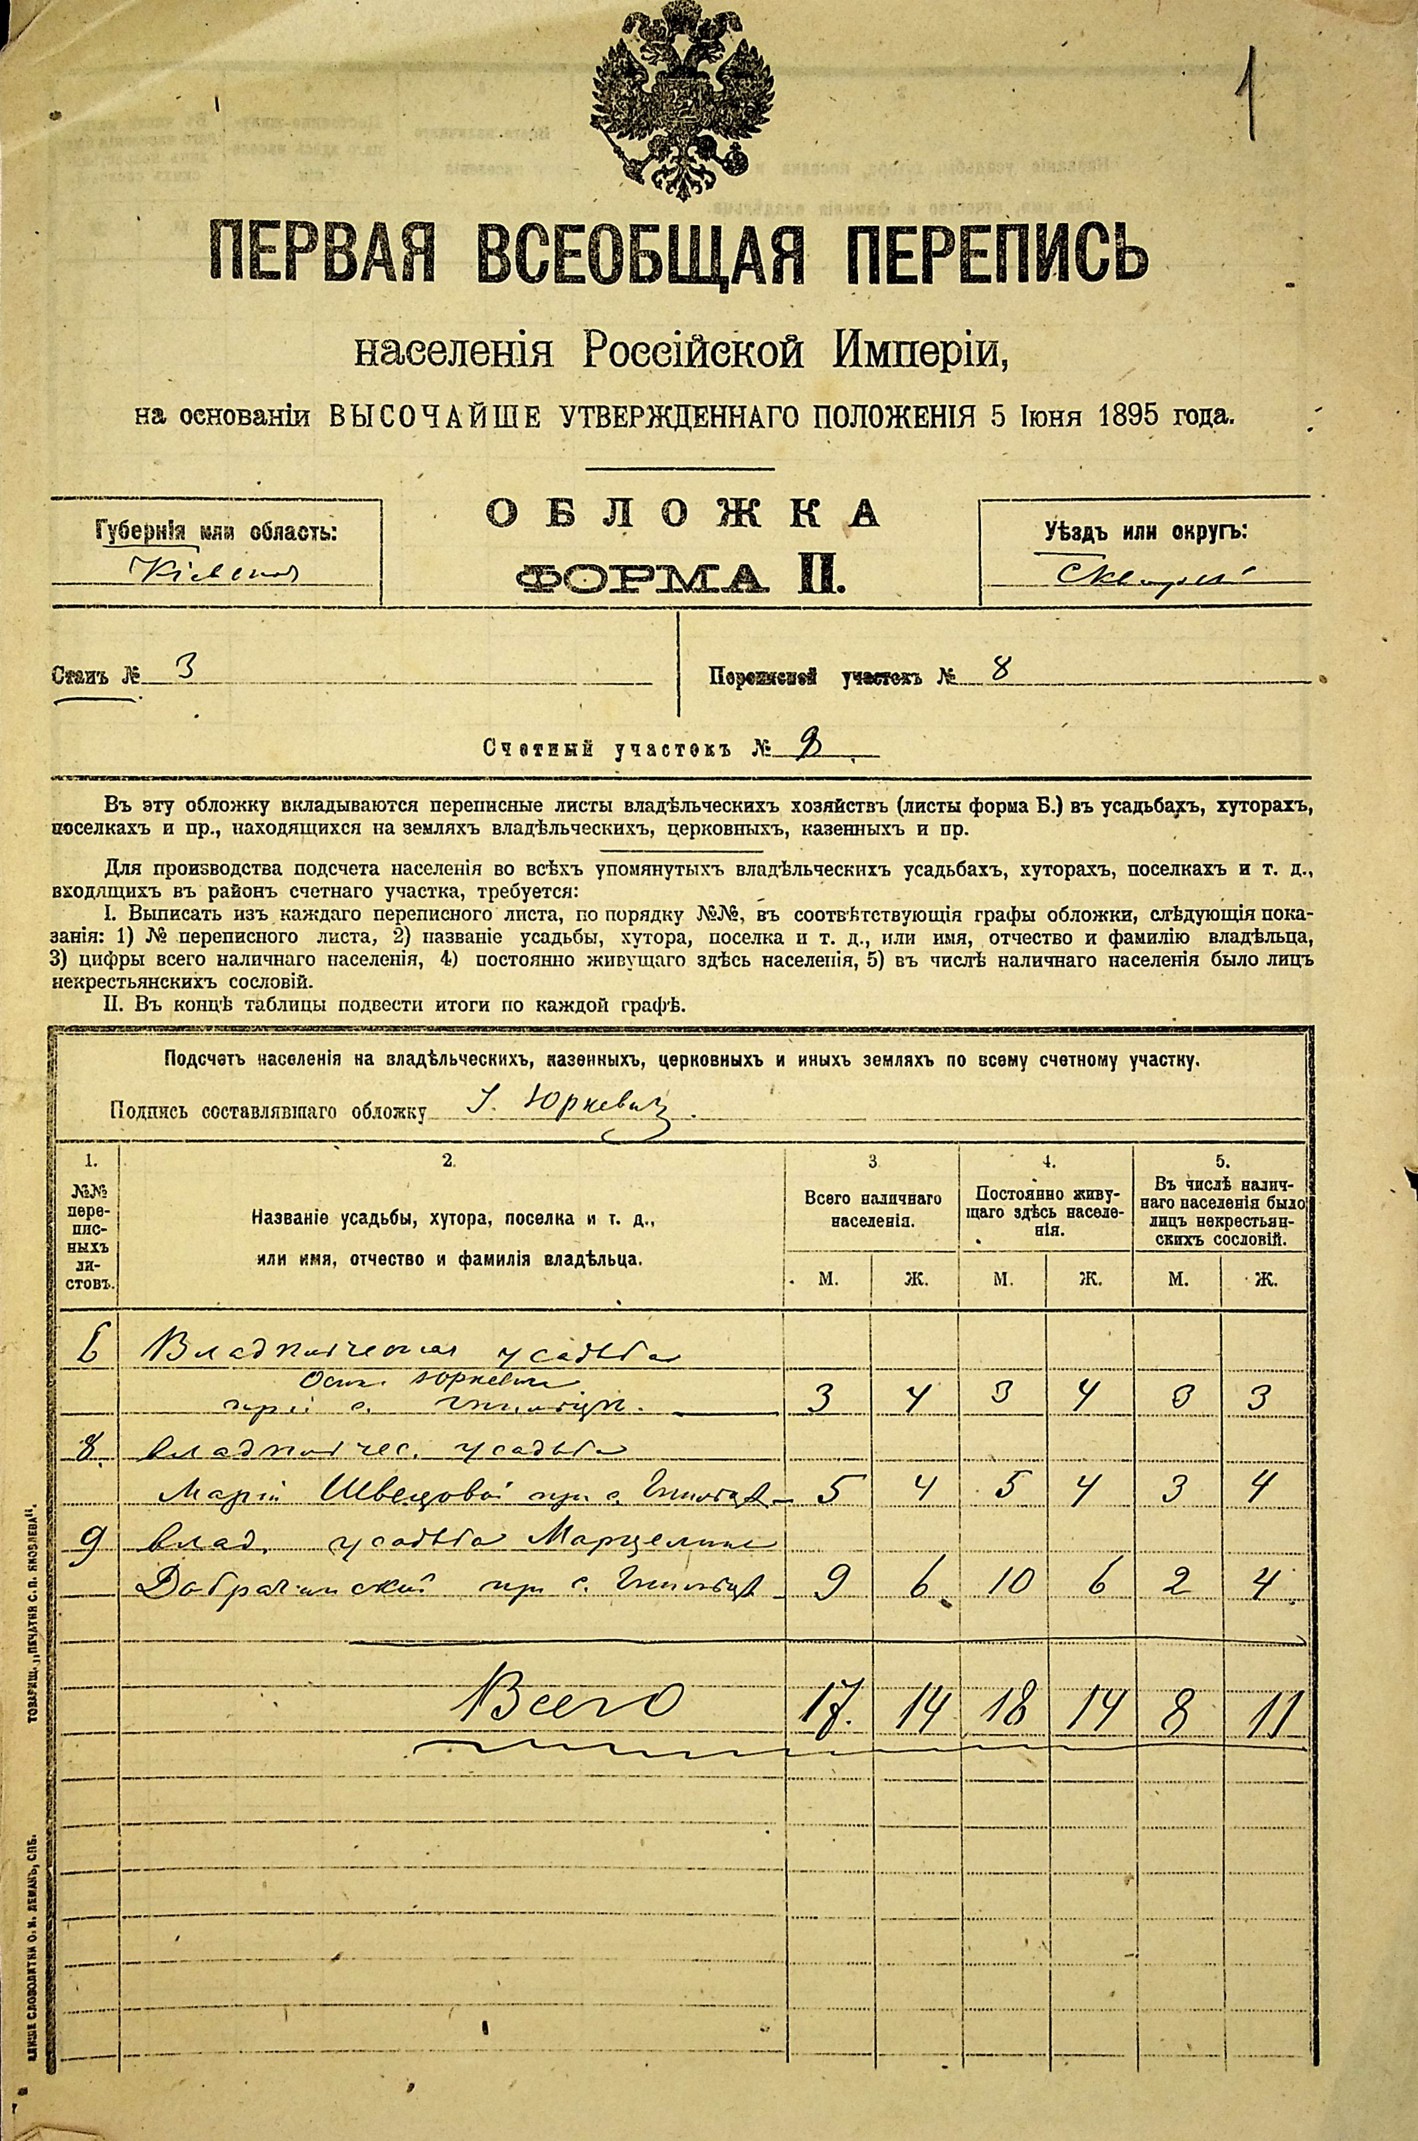 1
ПЕРВАЯ ВСЕОБЩАЯ ПЕРЕПИСЬ
населенія Россійской Имперіи,
на основаніи ВЫСОЧАЙШЕ УТВЕРЖДЕННАГО ПОЛОЖЕНІЯ 5 Іюня 1895 года.
ОБЛОЖКА
ФОРМА II.
Губернія или область:
Кіевская
Уѣздъ или округъ:
Сквирскій
Станъ № 3
Переписной участокъ № 8
Счетный участокъ №
Въ эту обложку вкладываются переписные листы владѣльческихъ хозяйствъ (листы форма Б.) въ усадьбахъ, хуторахъ,
поселкахъ и пр., находящихся на земляхъ владѣльческихъ, церковныхъ, казенныхъ и пр.
Для производства подсчета населенія во всѣхъ упомянутыхъ владѣльческихъ усадьбахъ, хуторахъ, поселкахъ и т. д.,
входящихъ въ районъ счетнаго участка, требуется:
I. Выписать изъ каждаго переписного листа, по порядку №№, въ соотвѣтствующія графы обложки, слѣдующія пока-
занія: 1) № переписного листа, 2) названіе усадьбы, хутора, поселка и т. д., или имя, отчество и фамилію владѣльца,
3) цифры всего наличнаго населенія, 4) постоянно живущаго здѣсь населенія, 5) въ числѣ наличнаго населенія было лицъ
некрестьянскихъ сословій.
II. Въ концѣ таблицы подвести итоги по каждой графѣ.
Подсчетъ населенія на владѣльческихъ, казенныхъ, церковныхъ и иныхъ земляхъ по всему счетному участку.
Подпись составлявшаго обложку І. Юркевичъ.
1.
№№ пере-
пис-
ныхъ
ли-
стовъ.
2.
Названіе усадьбы, хутора, поселка и т. д.,
или имя, отчество и фамилія владѣльца.
3
Всего наличнаго
населенія.
4.
Постоянно живу-
щаго здѣсь населе-
нія.
5.
Въ числѣ налич-
наго населенія было
лицъ некрестьян-
скихъ сословій.
М. Ж. М. Ж. М. Ж.
6 Владѣльческая усадьба
Осип. Юркевича
при с. 3 4 3 4 3 3
8. владѣльчес. усадьба
Маріи Швецовой при с. 5 4 5 4 3 4
9 влад. усадьба Марцелины
при с. 9 6 10 6 2 4
Всего 17. 14 18 14 8 11
ТОВАРИЩ. „ПЕЧАТНЯ С. П. ЯКОВЛЕВА“.
КЛИШЕ СЛОВОЛИТНИ О. И. ЛЕМАНЪ, СПБ.